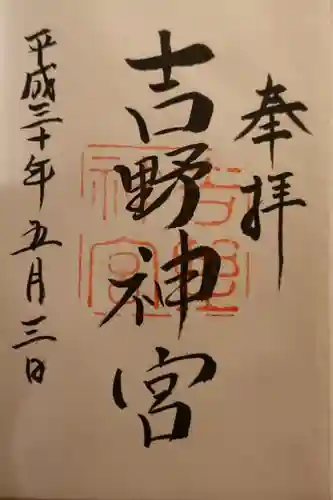 奉拝
吉野神宮
吉野神宮
平成三十年五月三日